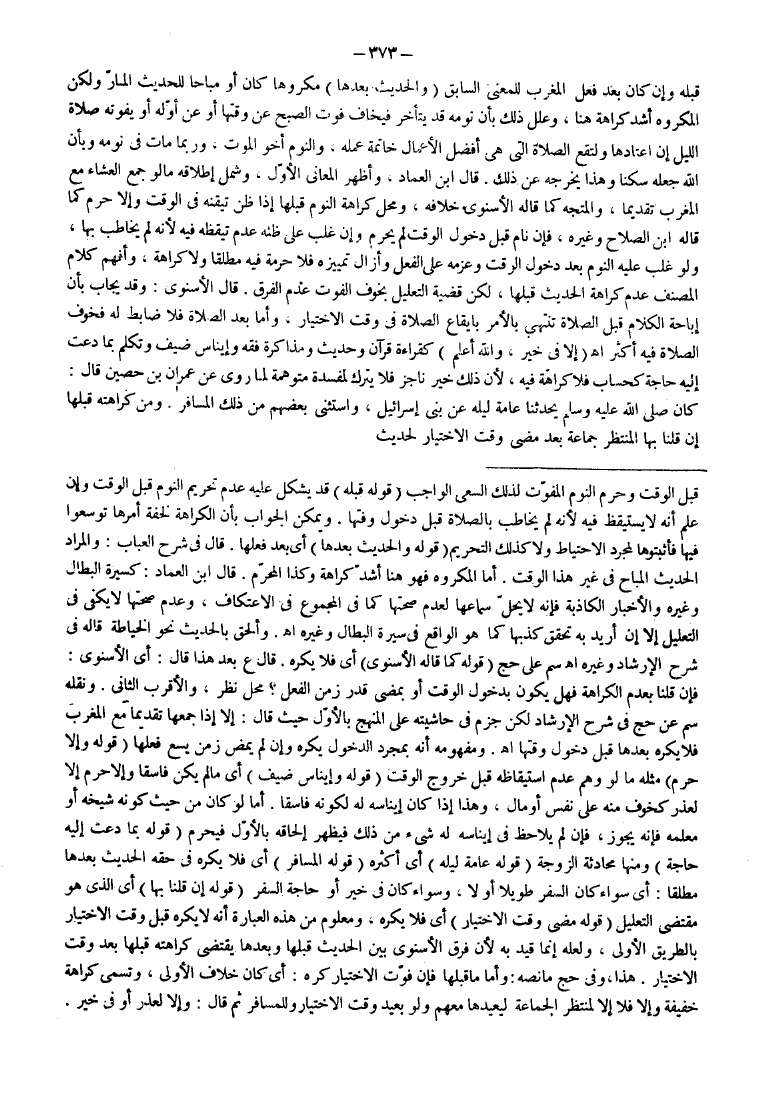 – ٣٧٣ –
قبله وإن كان بعد فعل المغرب للمعنى السابق ( والحديث بعدها ) مكروها كان أو مباحا للحديث المارّ ولكن
المكروه أشد كراهة هنا ، وعلل ذلك بأن نومه قد يتأخر فيخاف فوت الصبح عن وقتها أو عن أوّله أو يفوته صلاة
الليل إن اعتادها ولتقع الصلاة التى هى أفضل الأعمال خاتمة عمله ، والنوم أخو الموت ، وربما مات فى نومه وبأن
الله جعله سكنا وهذا يخرجه عن ذلك . قال ابن العماد ، وأظهر المعانى الأوّل ، وشمل إطلاقه مالو جمع العشاء مع
المغرب تقديما ، والمتجه كما قاله الأسنوى خلافه ، ومحل كراهة النوم قبلها إذا ظن تيقنه فى الوقت وإلا حرم كما
قاله ابن الصلاح وغيره ، فإن نام قبل دخول الوقت لم يحرم وإن غلب على ظنه عدم تيقظه فيه لأنه لم يخاطب بها ،
ولو غلب عليه النوم بعد دخول الوقت وعزمه على الفعل وأزال تمييزه فلا حرمة فيه مطلقا ولا كراهة ، وأفهم كلام
المصنف عدم كراهة الحديث قبلها ، لكن قضية التعليل بخوف الفوت عدم الفرق . قال الأسنوى : وقد يجاب بأن
إباحة الكلام قبل الصلاة تنتهى بالأمر بايقاع الصلاة فى وقت الاختيار ، وأما بعد الصلاة فلا ضابط له فخوف
الصلاة فيه أكثر اه ( إلا فى خير ، والله أعلم ) كقراءة قرآن وحديث ومذاكرة فقه وإيناس ضيف وتكلم بما دعت
إليه حاجة كحساب فلا كراهة فيه ، لأن ذلك خير ناجز فلا يترك لمفسدة متوهمة لما روى عن عمران بن حصين قال :
كان صلى الله عليه وسلم يحدثنا عامة ليله عن بنى إسرائيل ، واستثنى بعضهم من ذلك المسافر . ومن كراهته قبلها
إن قلنا بها المنتظر جماعة بعد مضى وقت الاختيار لحديث
قبل الوقت وحرم النوم المفوّت لذلك السعى الواجب ( قوله قبله ) قد يشكل عليه عدم تحريم النوم قبل الوقت وإن
علم أنه لا يستيقظ فيه لأنه لم يخاطب بالصلاة قبل دخول وقتها . ويمكن الجواب بأن الكراهة لخفة أمرها توسعوا
فيها فأثبتوها لمجرد الاحتياط ولا كذلك التحريم ( قوله والحديث بعدها ) أى بعد فعلها . قال فى شرح العباب : والمراد
الحديث المباح فى غير هذا الوقت . أما المكروه فهو هنا أشدّ كراهة وكذا المحرّم . قال ابن العماد : كسيرة البطال
وغيره والأخبار الكاذبة فإنه لا يحلّ سماعها لعدم صحتها كما فى المجموع فى الاعتكاف ، وعدم صحتها لا يكفى فى
التعليل إلا إن أريد به تحقق كذبها كما هو الواقع فى سيرة البطال وغيره اه . وألحق بالحديث نحو الخياطة قاله فى
شرح الإرشاد وغيره اه سم على حج ( قوله كما قاله الأسنوى ) أى فلا يكره . قال ع بعد هذا قال : أى الأسنوى :
فإن قلنا بعدم الكراهة فهل يكون بدخول الوقت أو بمضى قدر زمن الفعل ؟ محل نظر ، والأقرب الثانى . ونقله
سم عن حج فى شرح الإرشاد لكن جزم فى حاشيته على المنهج بالأوّل حيث قال : إلا إذا جمعها تقديما مع المغرب
فلا يكره بعدها قبل دخول وقتها اه . ومفهومه أنه بمجرد الدخول يكره وإن لم يمض زمن يسع فعلها ( قوله وإلا
حرم ) مثله ما لو وهم عدم استيقاظه قبل خروج الوقت ( قوله وإيناس ضيف ) أى مالم يكن فاسقا وإلا حرم إلا
لعذر كخوف منه على نفس أو مال ، وهذا إذا كان إيناسه له لكونه فاسقا . أما لو كان من حيث كونه شيخه أو
معلمه فإنه يجوز ، فإن لم يلاحظ فى إيناسه له شىء من ذلك فيظهر إلحاقه بالأوّل فيحرم ( قوله بما دعت إليه
حاجة ) ومنها محادثة الزوجة ( قوله عامة ليله ) أى أكثره ( قوله المسافر ) أى فلا يكره فى حقه الحديث بعدها
مطلقا : أى سواء كان السفر طويلا أو لا ، وسواء كان فى خير أو حاجة السفر ( قوله إن قلنا بها ) أى الذى هو
مقتضى التعليل ( قوله مضى وقت الاختيار ) أى فلا يكره ، ومعلوم من هذه العبارة أنه لا يكره قبل وقت الاختيار
بالطريق الأولى ، ولعله إنما قيد به لأن فرق الأسنوى بين الحديث قبلها وبعدها يقتضى كراهته قبلها بعد وقت
الاختيار . هذا ، وفى حج مانصه : وأما ماقبلها فإن فوّت الاختيار كره : أى كان خلاف الأولى ، وتسمى كراهة
خفيفة وإلا فلا إلا لمنتظر الجماعة ليعيدها معهم ولو بعيد وقت الاختيار وللمسافر ثم قال : وإلا لعذر أو فى خير .